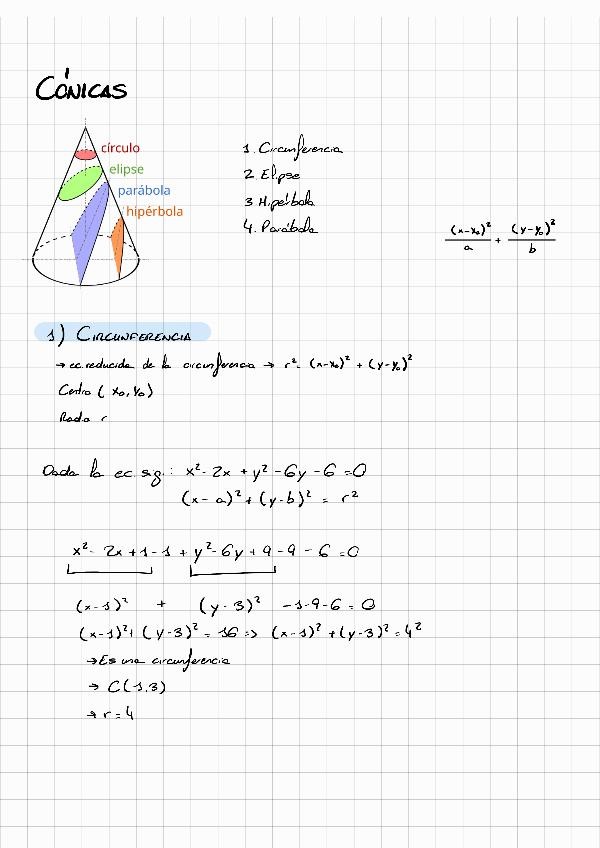 CÓNICAS
círculo
elipse
parábola
hipérbola
1. Circunferencia
2 Elipse
3 Hipérbola
4. Parábola
(x-x₀)²/a + (y-y₀)²/b
1) CIRCUNFERENCIA
→ ec. reducida de la circunferencia → r² = (x-x₀)² + (y-y₀)²
Centro (x₀, y₀)
Radio r
Dada la ec. sig.: x² - 2x + y² - 6y - 6 = 0
(x - a)² + (y - b)² = r²
x² - 2x + 1 - 1 + y² - 6y + 9 - 9 - 6 = 0
(x-1)² + (y-3)² - 1 - 9 - 6 = 0
(x-1)² + (y-3)² = 16 => (x-1)² + (y-3)² = 4²
→ Es una circunferencia
→ C(1,3)
→ r = 4